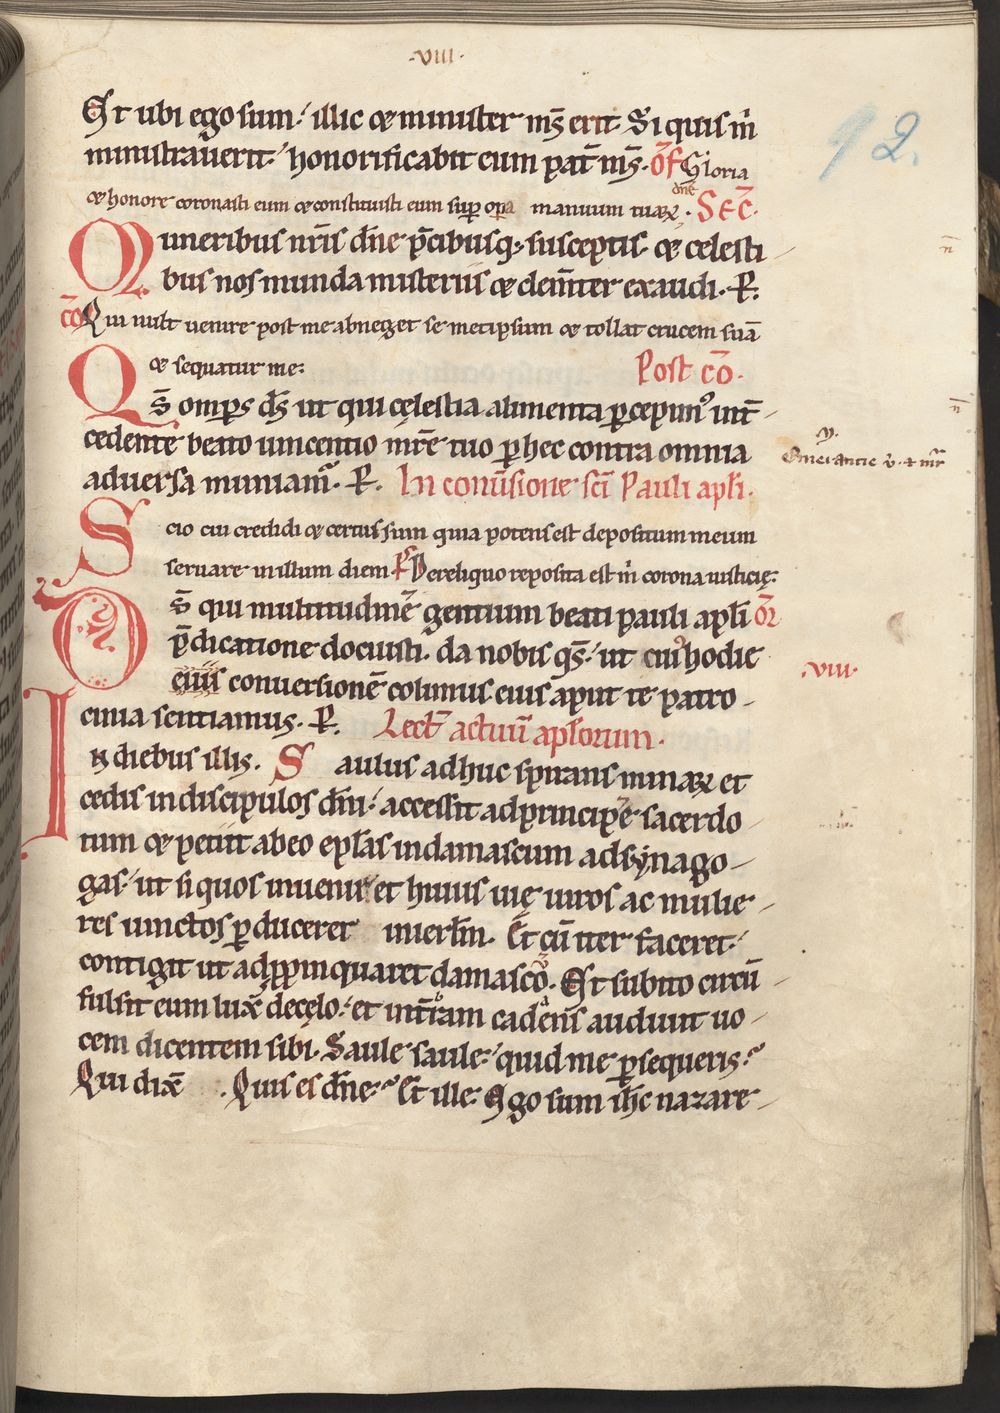 ·VIII·
Et ubi ego sum. illic & minister ms̄ erit. Si quis m̄
ministraverit. honorificabit eum pat̄ ms̄. Of̄ Gloria
92.
& honore coronasti eum & constituisti eum sup̲ op̲a dn̄e manuum tuaꝝ. Sec̄.
Muneribus nr̄is dn̄e p̄cibusq; susceptis & celesti
bus nos munda misteriis & clem̄ter exaudi. P.
cō Qui uult uenire post me abneget se metipsum & tollat crucem suā
& sequatur me: Post cō.
Qs̄ omp̄s ds̄ ut qui cęlestia alimenta p̲cepim᾽ int̄
cedente beato uincentio mr̄e tuo p̲ hec contra omnia
aduersa muniam᾽. P. In conūsione sc̄i Pauli apl̄i.
Scio cui credidi & certus sum quia potens est depositum meum
seruare in illum diem Ps̄ De reliquo reposita est m̄ corona iusticię:
Ds̄ qui multitudinē gentium beati pauli apl̄i or̄
p̄dicatione docuisti. da nobis qs̄. ut cui᾽ hodie
·VIII·
eius conuersionē colimus eius aput te patro
cinia sentiamus. P. Lect̄ actuū apl̄orum.
In diebus illis. Saulus adhuc spirans minaꝝ et
cedis in discipulos dn̄i. accessit ad principē sacerdo
tum & petiit ab eo epl̄as in damascum ad synago
gas. ut si quos inuenir& huius uię uiros ac mulie
res uinctos p̲duceret in ierl̄m. Et cū iter faceret.
contigit ut adp̲pinquaret damascō. Et subito circū
fulsit eum lux̄ de cęlo. et in t̄ram cadens audiuit uo
cem dicentem sibi. Saule saule. quid me p̲sequeris?
Qui dix̄ . Quis es dn̄e? Et ille. Ego sum ih̄c nazare